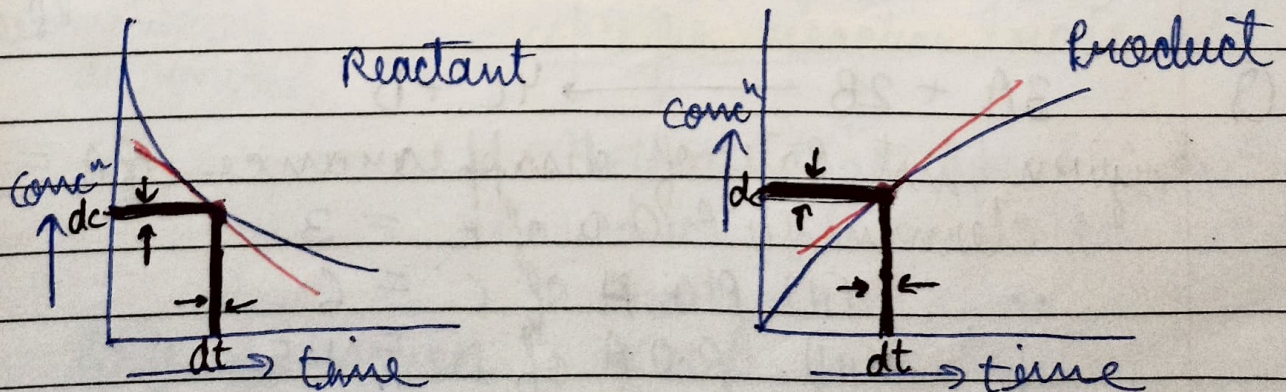 Reactant
Concⁿ
dc
dt
time
Product
Concⁿ
dc
dt
time